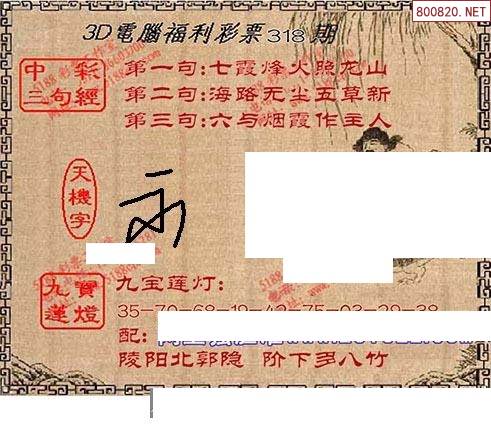 800820.NET
3D電腦福利彩票318期
中彩
三句經
第一句:七霞烽火照龙山
第二句:海路无尘五草新
第三句:六与烟霞作主人
天機字
九寶
蓮燈
九宝莲灯:
35-70-68-19-42-75-03-29-38
配:
陵阳北郭隐 阶下多八竹